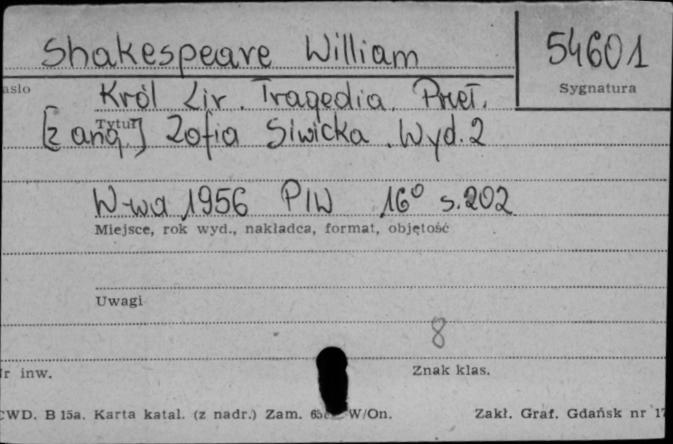 Shakespeare William 54601
asło Sygnatura
Król Lir. Tragedia. Przeł.
Tytuł
[z ang.] Zofia Siwicka. Wyd. 2
W-wa 1956 PIW 16° s. 202
Miejsce, rok wyd., nakładca, format, objętość
Uwagi
8
r inw. Znak klas.
CWD. B 15a. Karta katal. (z nadr.) Zam. W/On. Zakł. Graf. Gdańsk nr 1